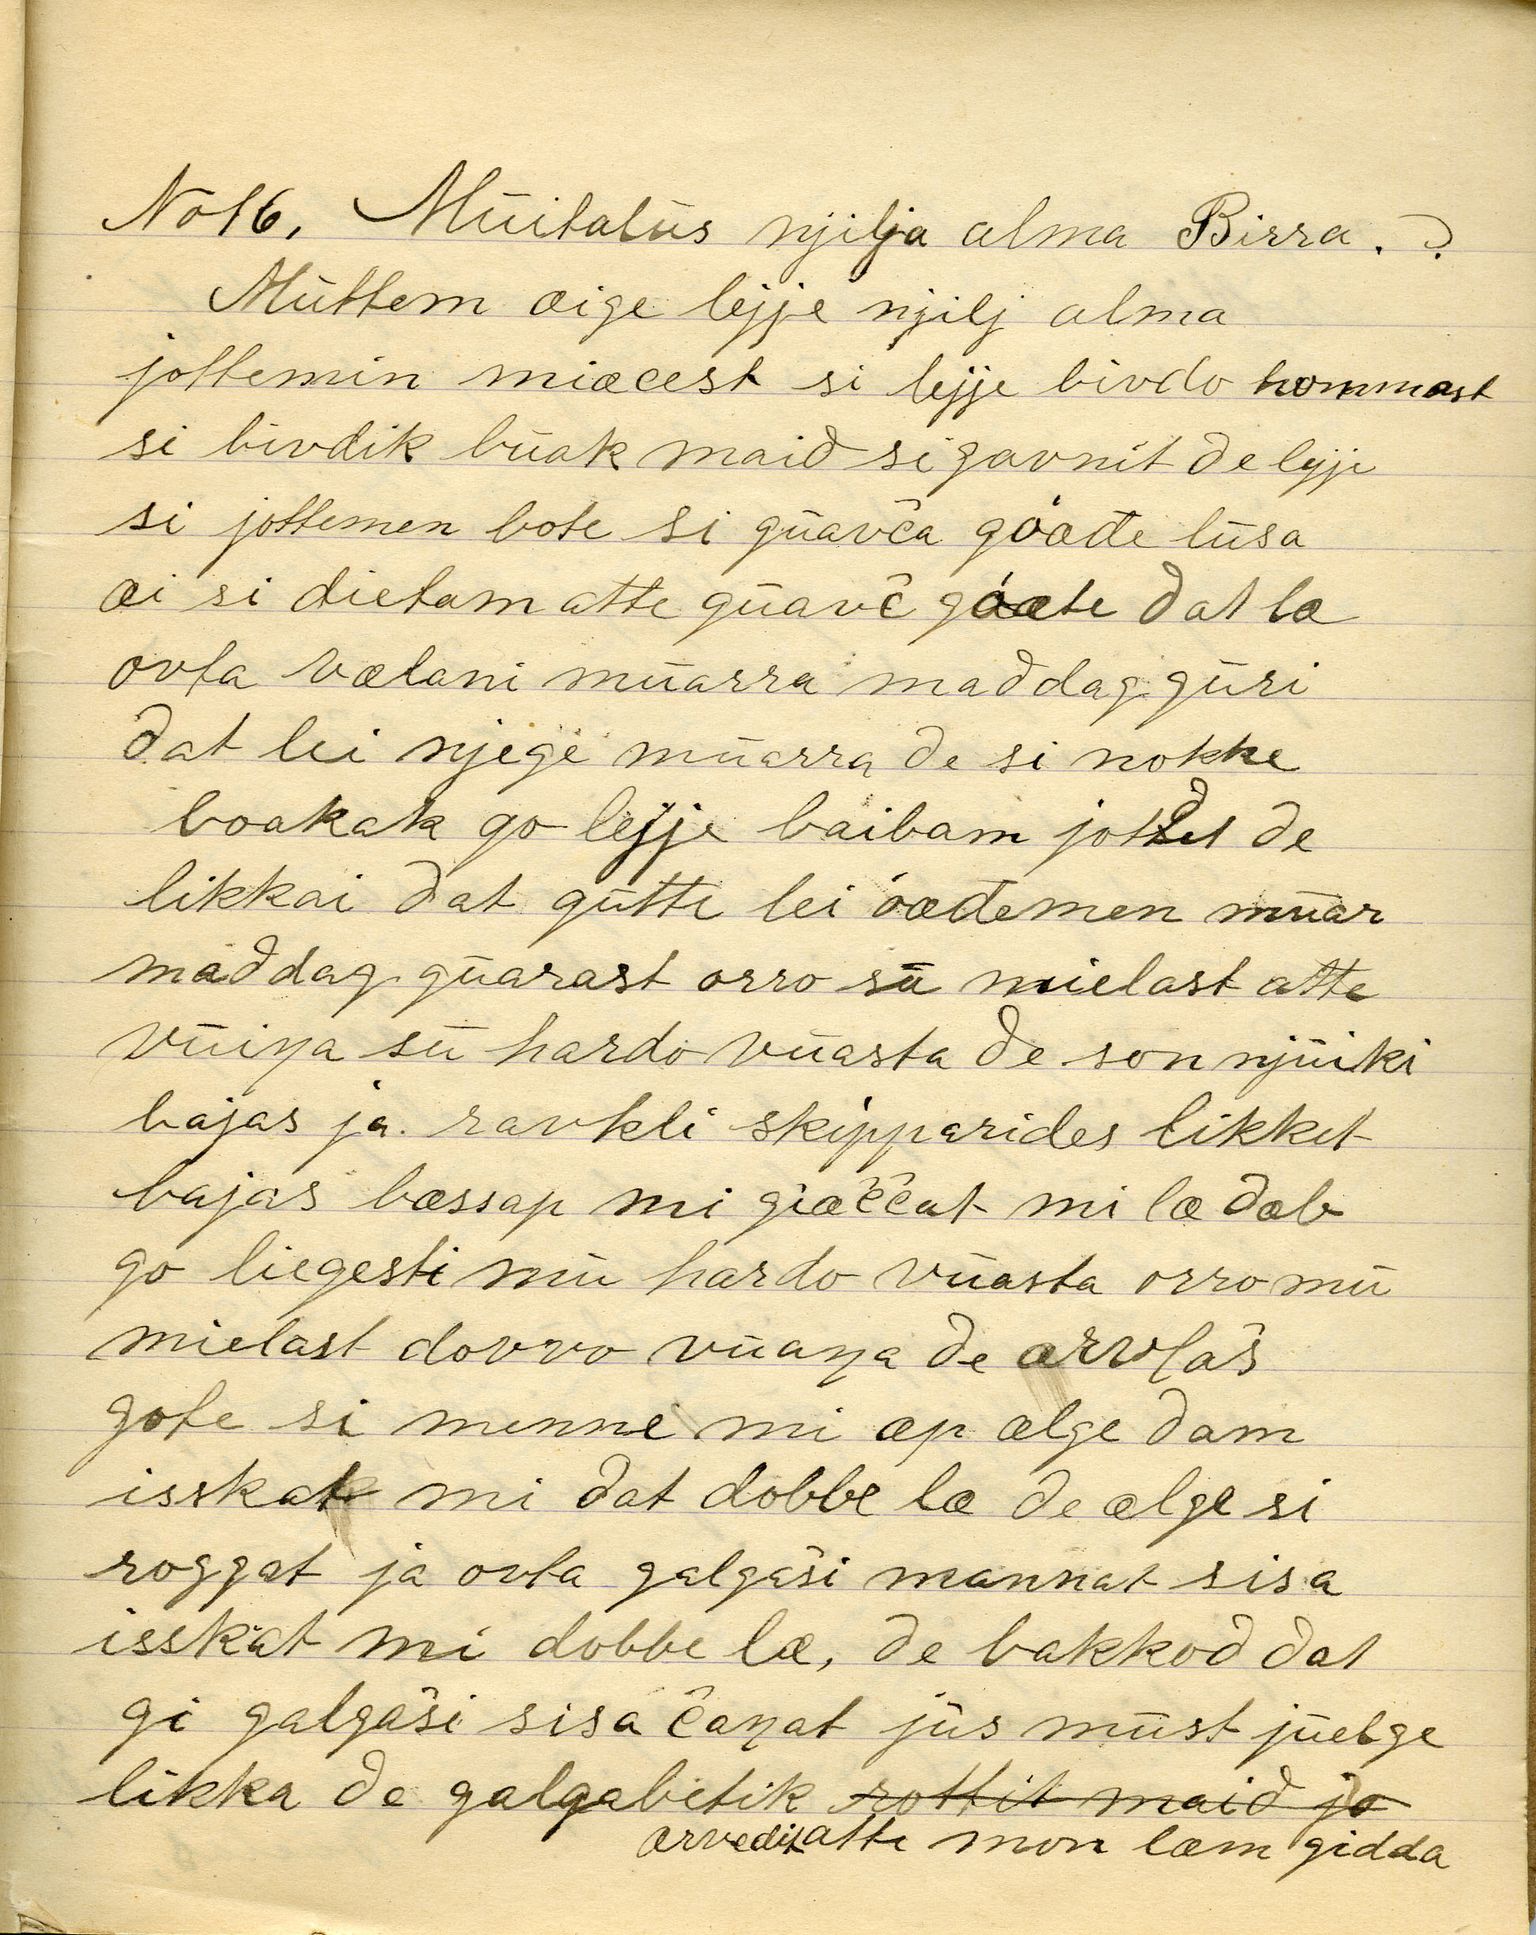 No16. Mūitalūs njilja alma Birra. ?
Mūttem œige lejje njilj alma
jottemin miœcest si lejje bivdo hommast
si bivdik būak maid si gavnit de lejje
si jottemen bote si gūavča góœđe lūsa
œi si dietam atte gūavč góœte dat lœ
ovta vœlani mūarra maddag gūri
dat lei njege mūarra de si nokke
boakak go lejje baibam jottet de
likkai dat gūtte lei óœđemen mūar
maddag gūarast orro sū mielast atte
vūiŋa sū hardo vūasta de son njūiki
bajas ja ravkli skipparides likket
bajas bœssap mi giœččat mi lœ dœb
go liegesti mū hardo vūasta orro mū
mielast dovvo vūaŋa de arvlaš
gote si menne mi œp œlge dam
isskat mi dat dobbe lœ de œlge si
roggat ja ovta galgaši mannat sisa
isskat mi dobbe lœ, de bakkod dat
gi galgaši sisa čaŋat jūs mūst jūelge
likka de galgabetik rottit maid ja
arvedit atte mon lœm gidda